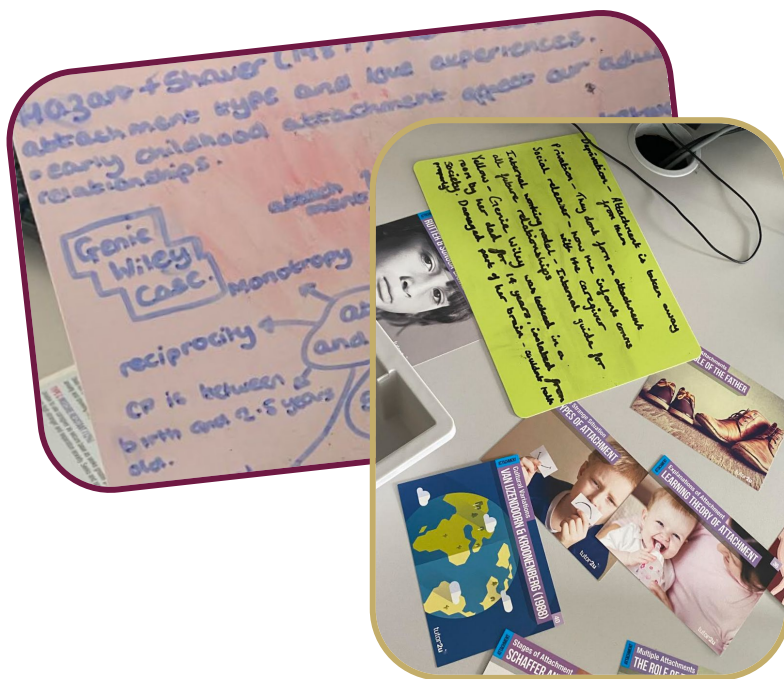 Hazan + Shaver
attachment type and love experiences.
- early childhood attachment affect our adult
relationships.
attach
Genie
Wiley
Case.
Monotropy
reciprocity
and
CP is between
birth and 2.5 years
old.
Deprivation - Attachment is taken away
from them
Privation - They dont form an attachment
Social releaser - how the infants comes
with the caregiver
Internal working model - Internal guide for
all future relationships
Genie Wiley was locked in a
room by her dad for 14 years, isolated from
society. Damaged part of her brain - couldnt
properly
RUTTER &
Attachments
LE OF THE FATHER
Strange Situation
TYPES OF ATTACHMENT
Explanations of Attachment
LEARNING THEORY OF ATTACHMENT
tutor2u
Cultural Variations
VAN IJZENDOORN & KROONENBERG (1988)
tutor2u
Stages of Attachment
SCHAFFER AN
Multiple Attachments
THE ROLE OF